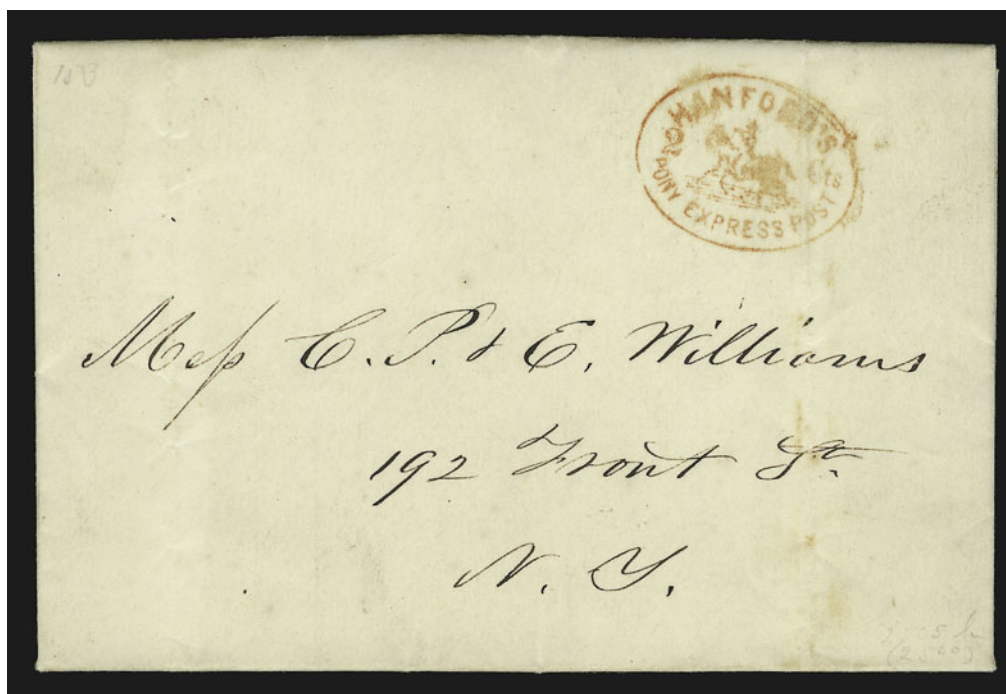 HANFORD'S
2 Cts
PONY EXPRESS POST
Mess C. P. & E. Williams
192 Front St.
N. Y.